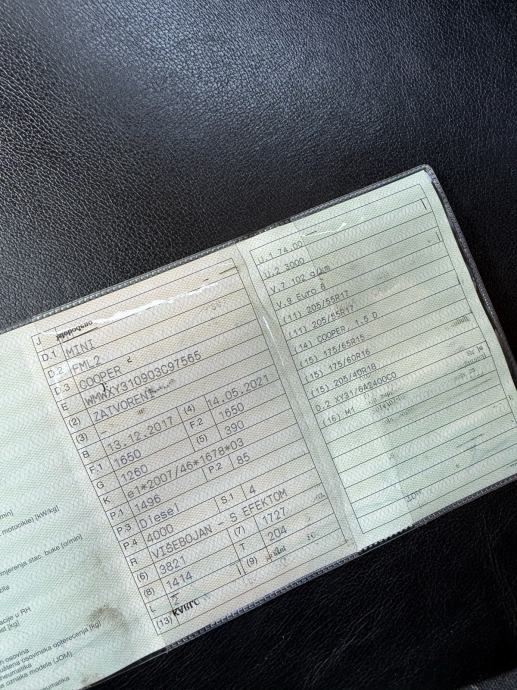 J
D.1 MINI
D.2 FML2
D.3 COOPER
E WMWXY310903C97565
(2) ZATVORENI
(3) -
B 13.12.2017 (4) 14.05.2021
F.1 1650 F.2 1650
G 1260 (5) 390
K e1*2007/46*1678*03
P.1 1496 P.2 85
P.3 Diesel
P.4 4000 S.1 4
R VIŠEBOJAN - S EFEKTOM
(6) 3821 (7) 1727
(8) 1414 T 204
L 2 (9)
(13)
U.1 74.00
U.2 3000
V.7 102 g/km
V.9 Euro 6
(11) 205/55R17
(11) 205/55R17
(14) COOPER, 1.5 D
(15) 175/65R15
(15) 175/60R16
(15) 205/40R18
D.2 XY31/6A2400C0
(16) M1
/min]
motocikle) [kW/kg]
o/min]
mjerenja stac. buke [o/min]
acije u RH
ost [kg]
osovina
uštena osovinska opterećenja [kg]
neumatika
na oznaka modela (JOM)
neumatika